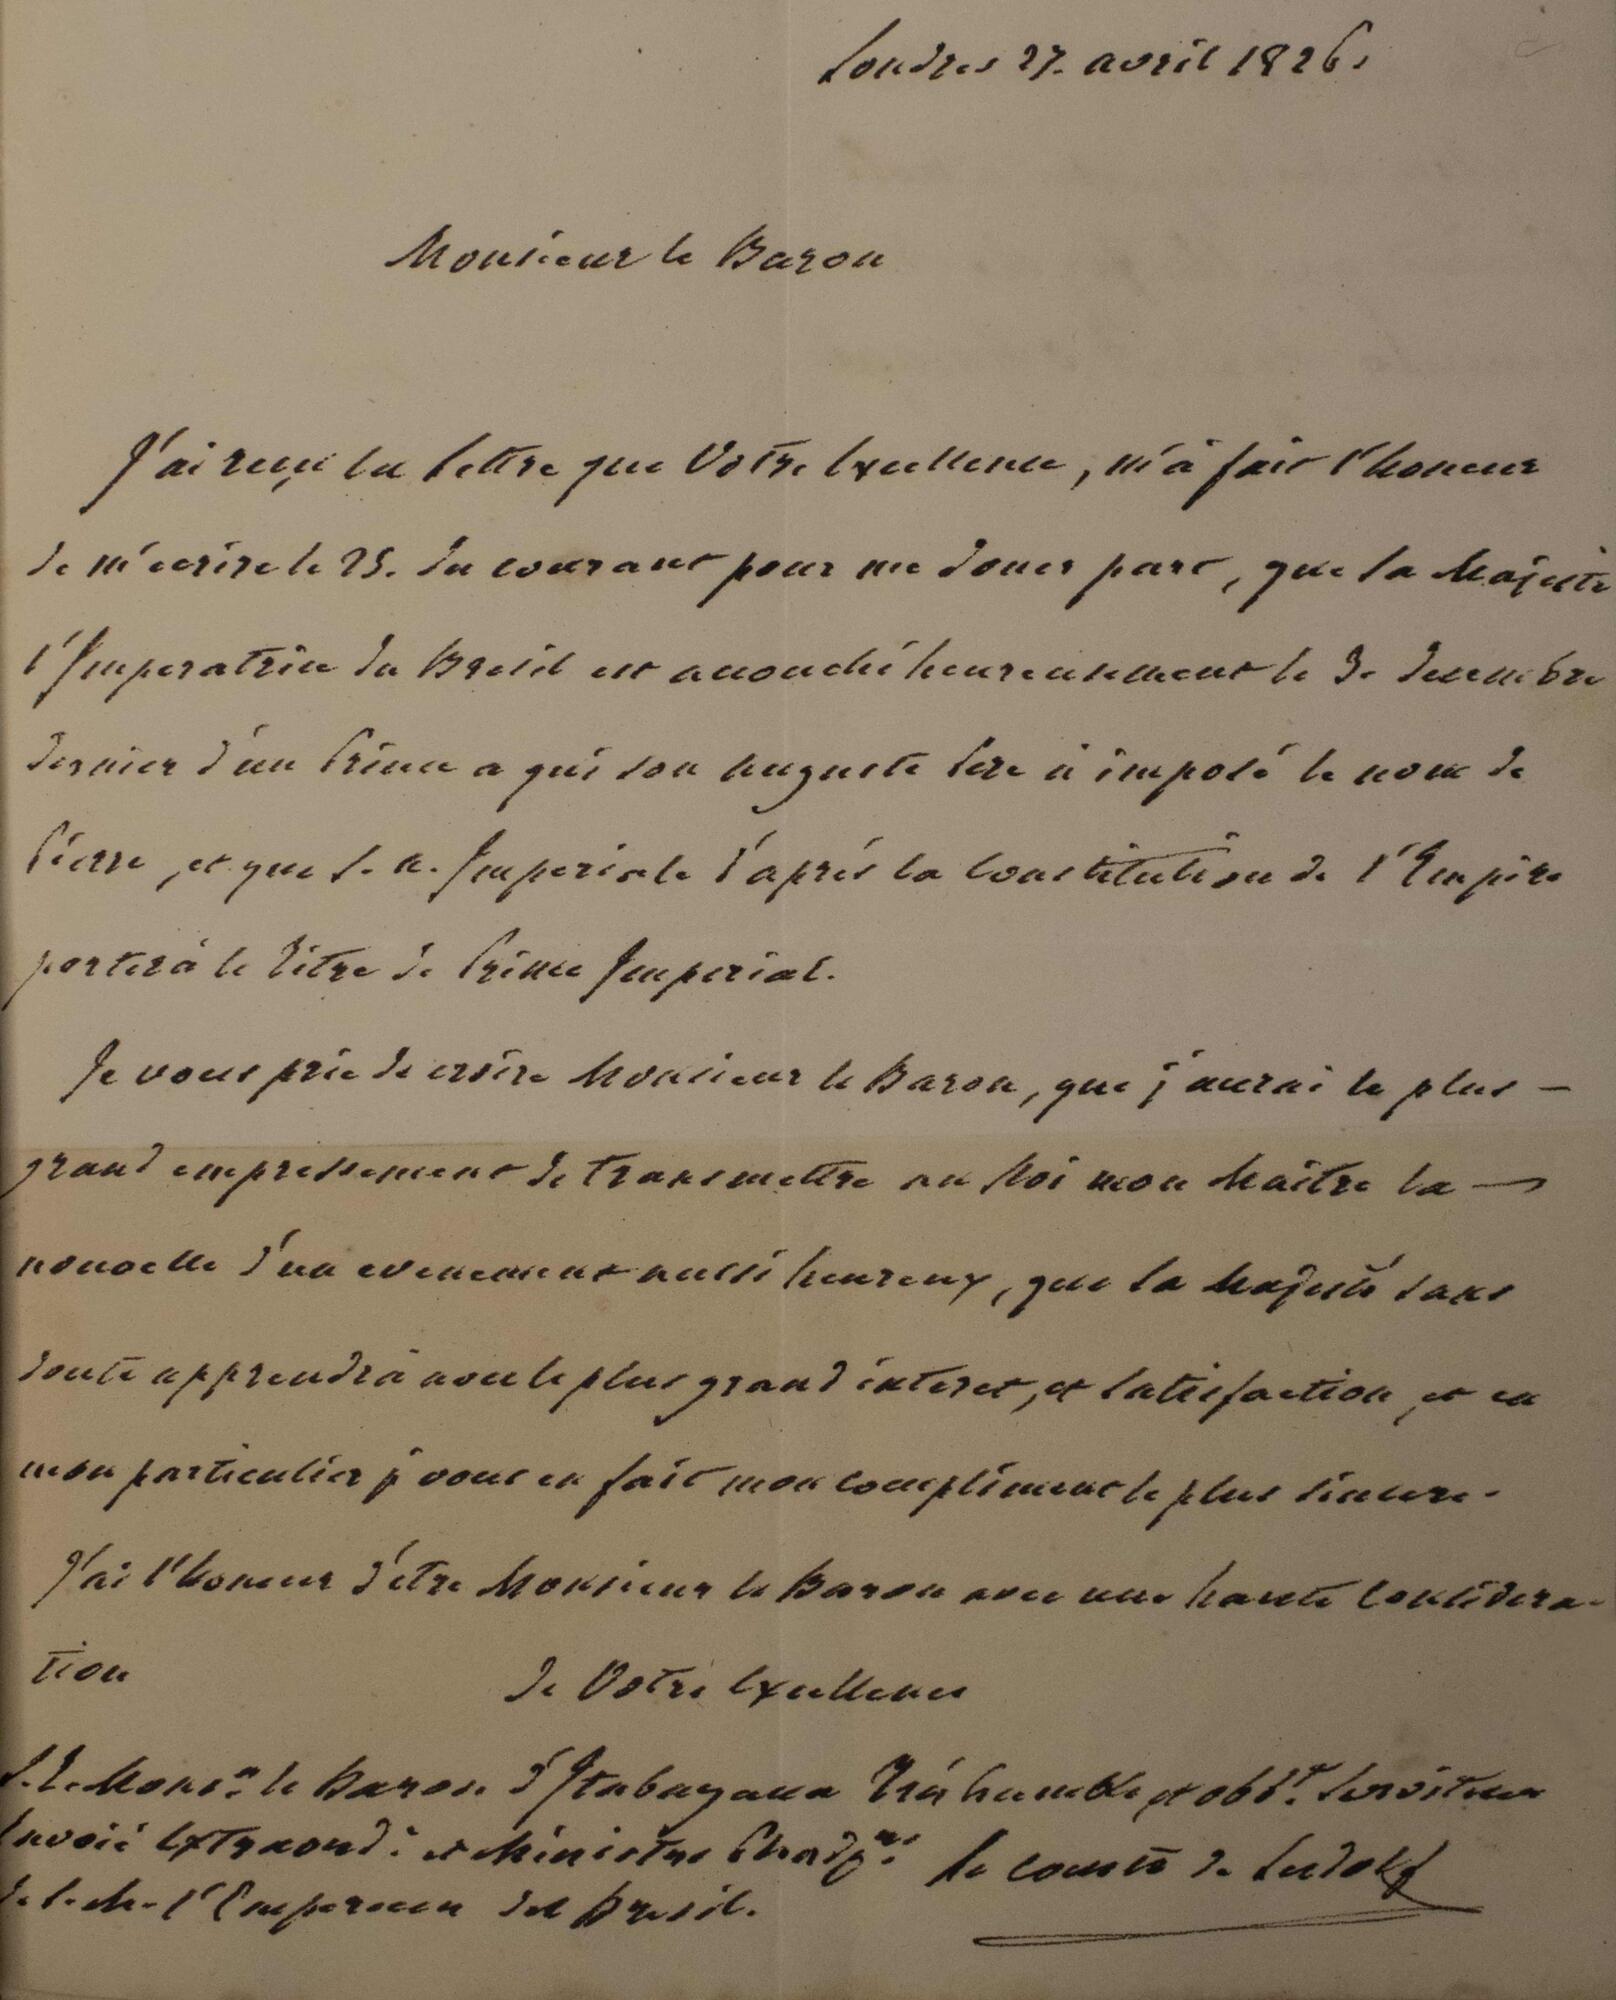 Londres 27. avril 1826.
Monsieur le Baron
J'ai reçu la lettre que Votre Excellence, m'à fait l'honeur
de m'ecrire le 25. du courant pour me doner part, que Sa Majesté
l'Imperatrice du Bresil est accouché heureusement le 3e Decembre
dernier d'un Prince a qui son Auguste Pere à imposé le nom de
Pierre, et que S. A. Imperiale d'aprés la Constitution de l'Empire
porterà le titre de Prince Imperial.
Je vous prie de croire Monsieur le Baron, que j'aurai le plus —
grand empressement de transmettre au Roi mon Maître la —
nouvelle d'un evenement aussi heureux, que Sa Majesté sans
doute apprendrà avec le plus grand interet, et satisfaction, et en
mon particulier j vous en fait mon compliment le plus sincere.
J'ai l'honeur d'etre Monsieur le Baron avec une haute Considera-
tion
de Votre Excellence
S. E. Monsr. le Baron d'Itabayana Trés humble, et obt. Serviteur
Envoié Extraord: et Ministre
de S. M. l'Empereur del Bresil.
Le Comte de Ludolf